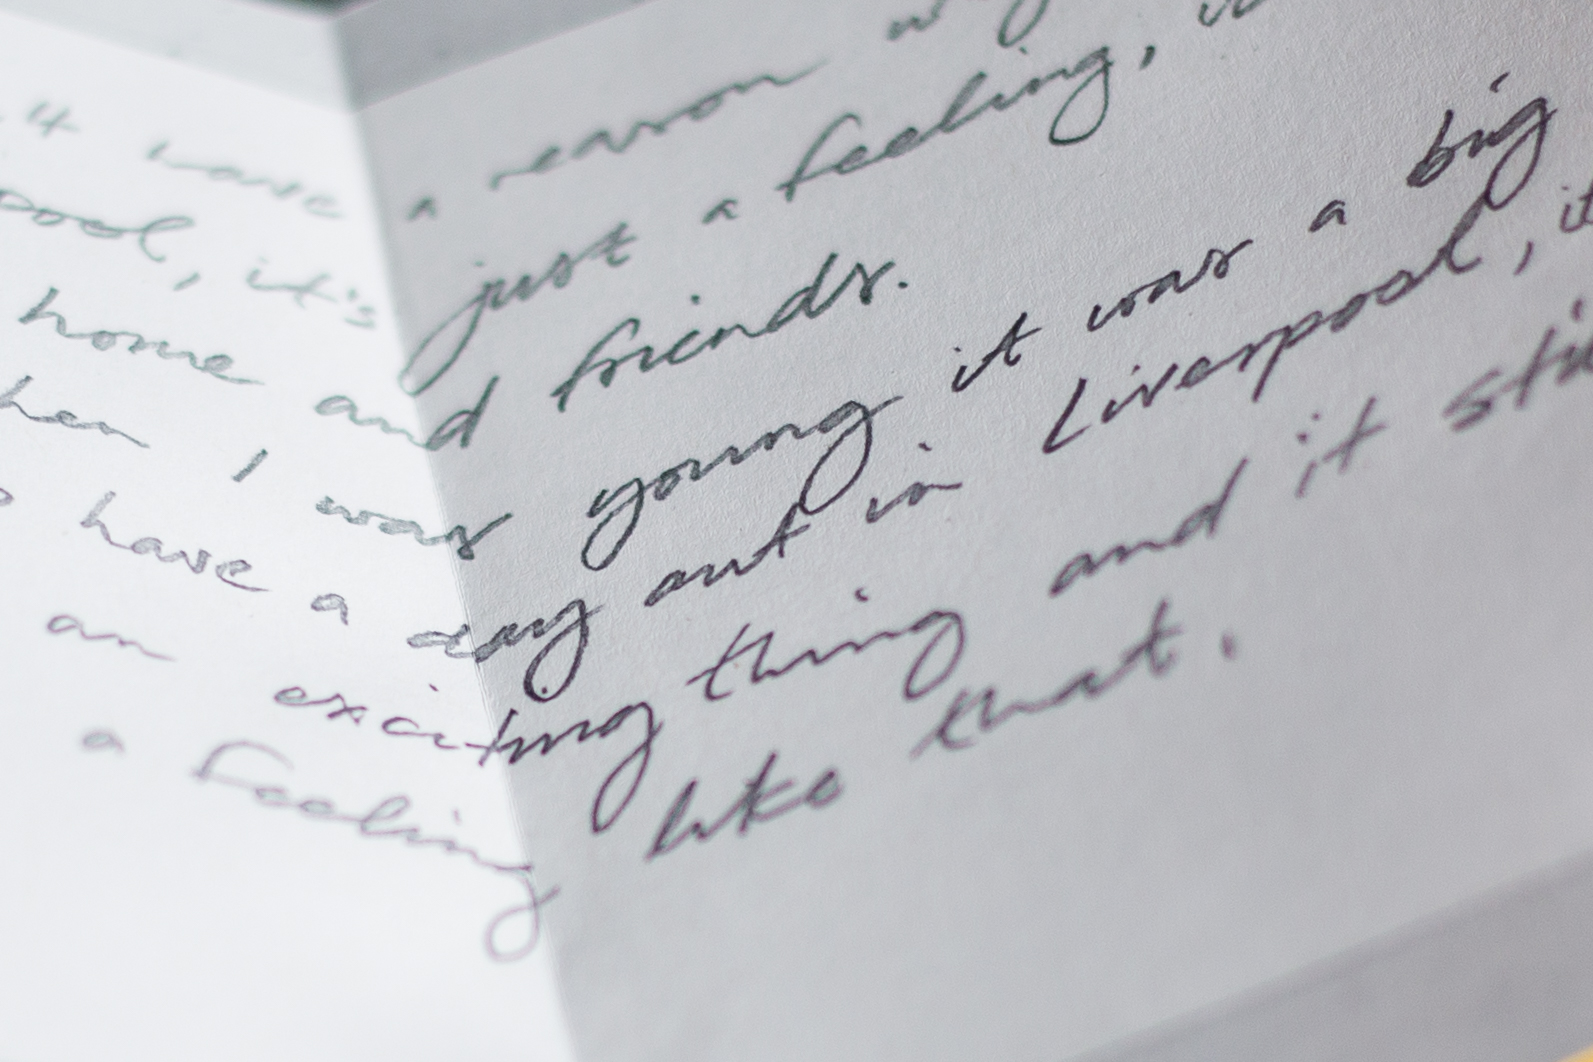 have a reason
pool, it's just a feeling,
home and friends.
hen I was young it was a big
have a day out in Liverpool, it
an exciting thing and it sti
a feeling like that.